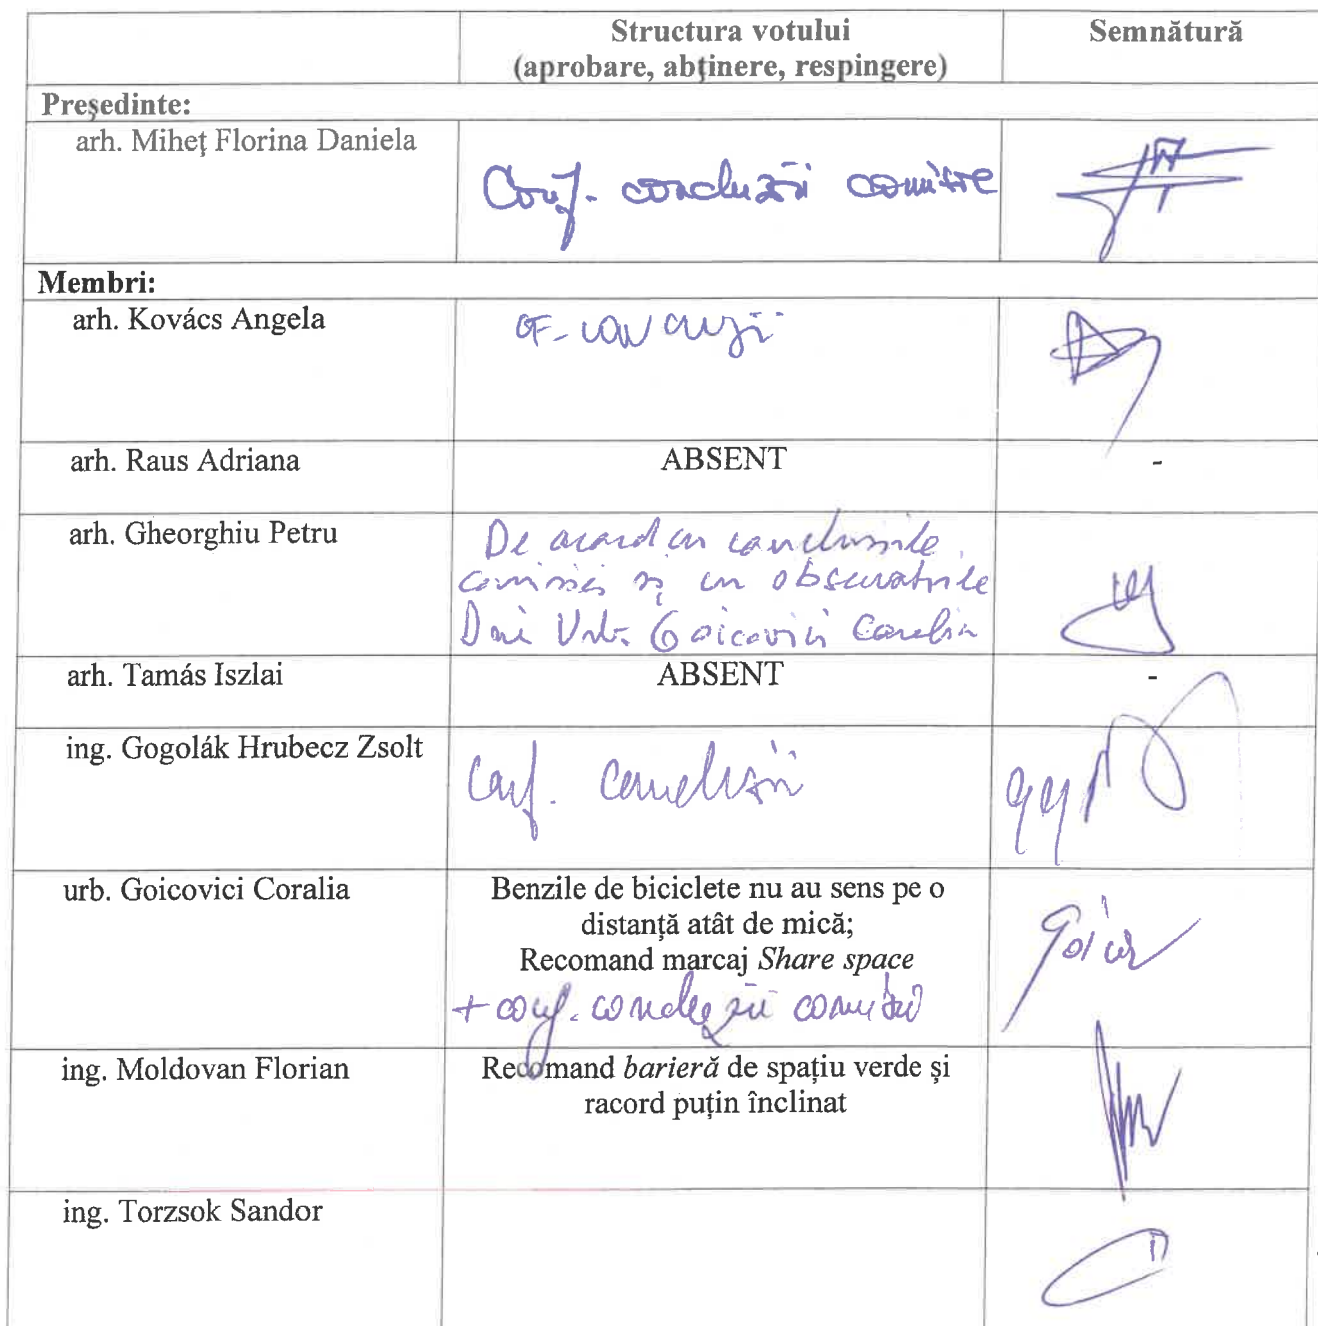 Structura votului
(aprobare, abținere, respingere)
Semnătură
Președinte:
arh. Miheț Florina Daniela
Conf. concluzii comisie
Membri:
arh. Kovács Angela
arh. Raus Adriana
ABSENT
-
arh. Gheorghiu Petru
De acord cu concluziile
comisiei și cu observatiile
Dnei Urb. Goicovici Coralia
arh. Tamás Iszlai
ABSENT
-
ing. Gogolák Hrubecz Zsolt
Conf. concluzii
urb. Goicovici Coralia
Benzile de biciclete nu au sens pe o
distanță atât de mică;
Recomand marcaj Share space
+ conf. concluzii comisiei
ing. Moldovan Florian
Recomand barieră de spațiu verde și
racord puțin înclinat
ing. Torzsok Sandor